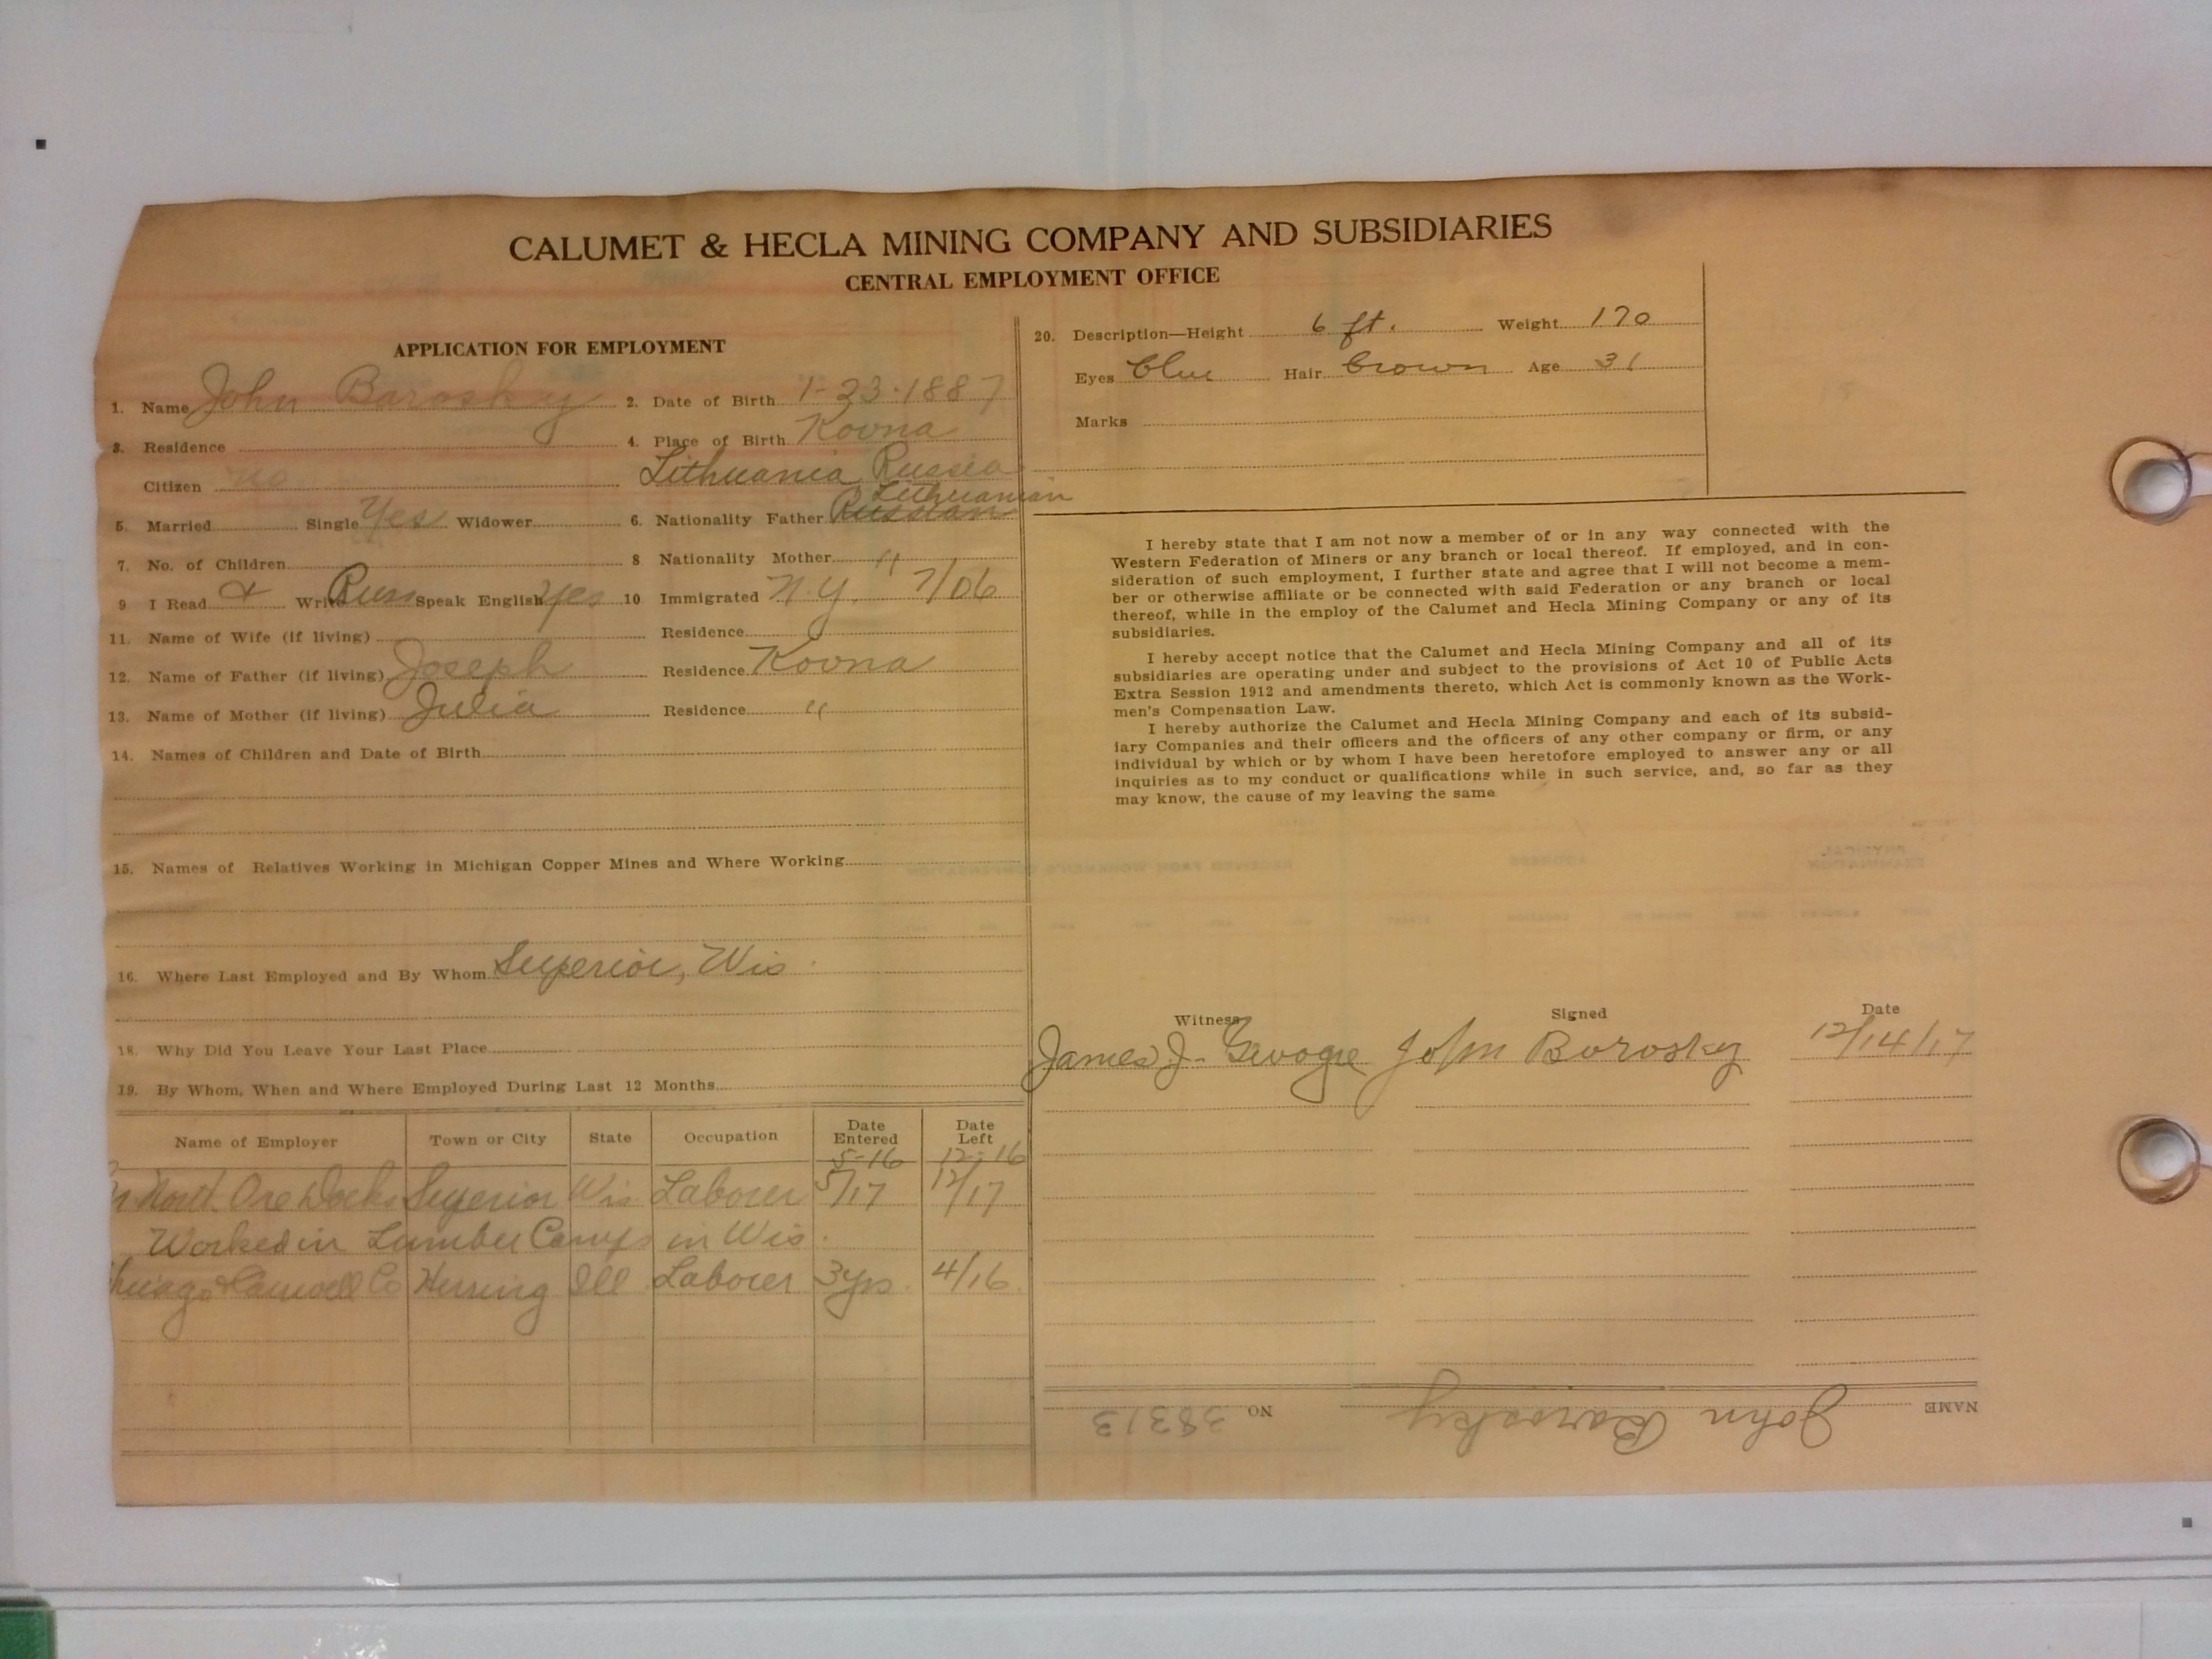 CALUMET & HECLA MINING COMPANY AND SUBSIDIARIES
CENTRAL EMPLOYMENT OFFICE
APPLICATION FOR EMPLOYMENT
1. Name John Barosky 2. Date of Birth 1-23-1887
3. Residence 4. Place of Birth Kovna
Citizen no Lithuania Russia
Lithuanian
5. Married Single Yes Widower 6. Nationality Father Russian
7. No. of Children 8 Nationality Mother "
9 I Read & Write Russ Speak English yes 10 Immigrated N.Y. 7/06
11. Name of Wife (if living) Residence
12. Name of Father (if living) Joseph Residence Kovna
13. Name of Mother (if living) Julia Residence "
14. Names of Children and Date of Birth
15. Names of Relatives Working in Michigan Copper Mines and Where Working
16. Where Last Employed and By Whom Superior, Wis
18. Why Did You Leave Your Last Place
19. By Whom, When and Where Employed During Last 12 Months
Name of Employer Town or City State Occupation Date Entered Date Left
5-16 12-16
Ore Docks Superior Wis Laborer 5/17 12/17
Worked in Lumber Camps in Wis.
Co Herring Ill Laborer 3yrs. 4/16
20. Description—Height 6 ft. Weight 170
Eyes blue Hair brown Age 31
Marks
I hereby state that I am not now a member of or in any way connected with the
Western Federation of Miners or any branch or local thereof. If employed, and in con-
sideration of such employment, I further state and agree that I will not become a mem-
ber or otherwise affiliate or be connected with said Federation or any branch or local
thereof, while in the employ of the Calumet and Hecla Mining Company or any of its
subsidiaries.
I hereby accept notice that the Calumet and Hecla Mining Company and all of its
subsidiaries are operating under and subject to the provisions of Act 10 of Public Acts
Extra Session 1912 and amendments thereto, which Act is commonly known as the Work-
men's Compensation Law.
I hereby authorize the Calumet and Hecla Mining Company and each of its subsid-
iary Companies and their officers and the officers of any other company or firm, or any
individual by which or by whom I have been heretofore employed to answer any or all
inquiries as to my conduct or qualifications while in such service, and, so far as they
may know, the cause of my leaving the same
Witness Signed Date
James J. John Borosky 12/14/17
NAME John Barosky NO 38313